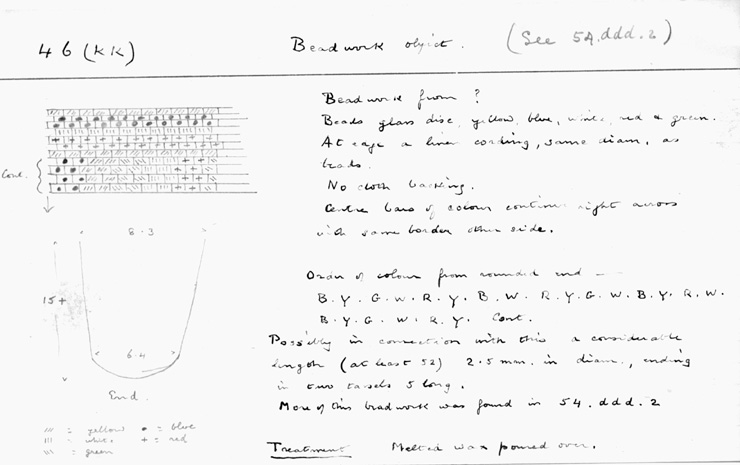 46 (KK) Beadwork object. (See 54.ddd.2)
Beadwork from ?
Beads glass disc, yellow, blue, white, red & green.
At edge a linen cording, same diam, as
beads.
No cloth backing.
Centre bars of colour continue right across
with same border other side.
Cont.
8.3
15+
6.4
End.
Order of colour from rounded end —
B. Y. G. W. R. Y. B. W. R. Y. G. W. B. Y. R. W.
B. Y. G. W. R. Y. Cont.
Possibly in connection with this a considerable
length (at least 52) 2.5 mm. in diam., ending
in two tassels 5 long.
More of this beadwork was found in 54.ddd.2
/// = yellow • = blue
||| = white. + = red
\\\ = green
Treatment Melted wax poured over.